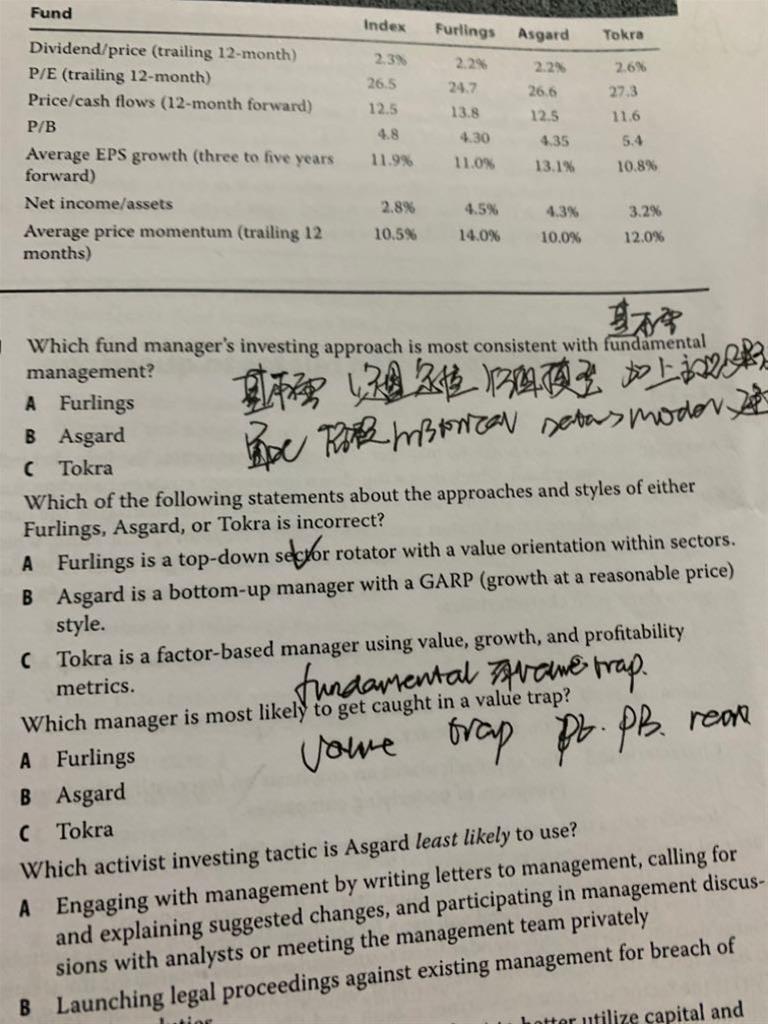 Fund
Index Furlings Asgard Tokra
Dividend/price (trailing 12-month) 2.3% 2.2% 2.2% 2.6%
P/E (trailing 12-month) 26.5 24.7 26.6 27.3
Price/cash flows (12-month forward) 12.5 13.8 12.5 11.6
P/B 4.8 4.30 4.35 5.4
Average EPS growth (three to five years 11.9% 11.0% 13.1% 10.8%
forward)
Net income/assets 2.8% 4.5% 4.3% 3.2%
Average price momentum (trailing 12 10.5% 14.0% 10.0% 12.0%
months)
Which fund manager's investing approach is most consistent with fundamental
management?
A Furlings
B Asgard
C Tokra
Which of the following statements about the approaches and styles of either
Furlings, Asgard, or Tokra is incorrect?
A Furlings is a top-down sector rotator with a value orientation within sectors.
B Asgard is a bottom-up manager with a GARP (growth at a reasonable price)
style.
C Tokra is a factor-based manager using value, growth, and profitability
metrics.
fundamental trap.
Which manager is most likely to get caught in a value trap?
A Furlings
value trap PB.
B Asgard
C Tokra
Which activist investing tactic is Asgard least likely to use?
A Engaging with management by writing letters to management, calling for
and explaining suggested changes, and participating in management discus-
sions with analysts or meeting the management team privately
B Launching legal proceedings against existing management for breach of
better utilize capital and